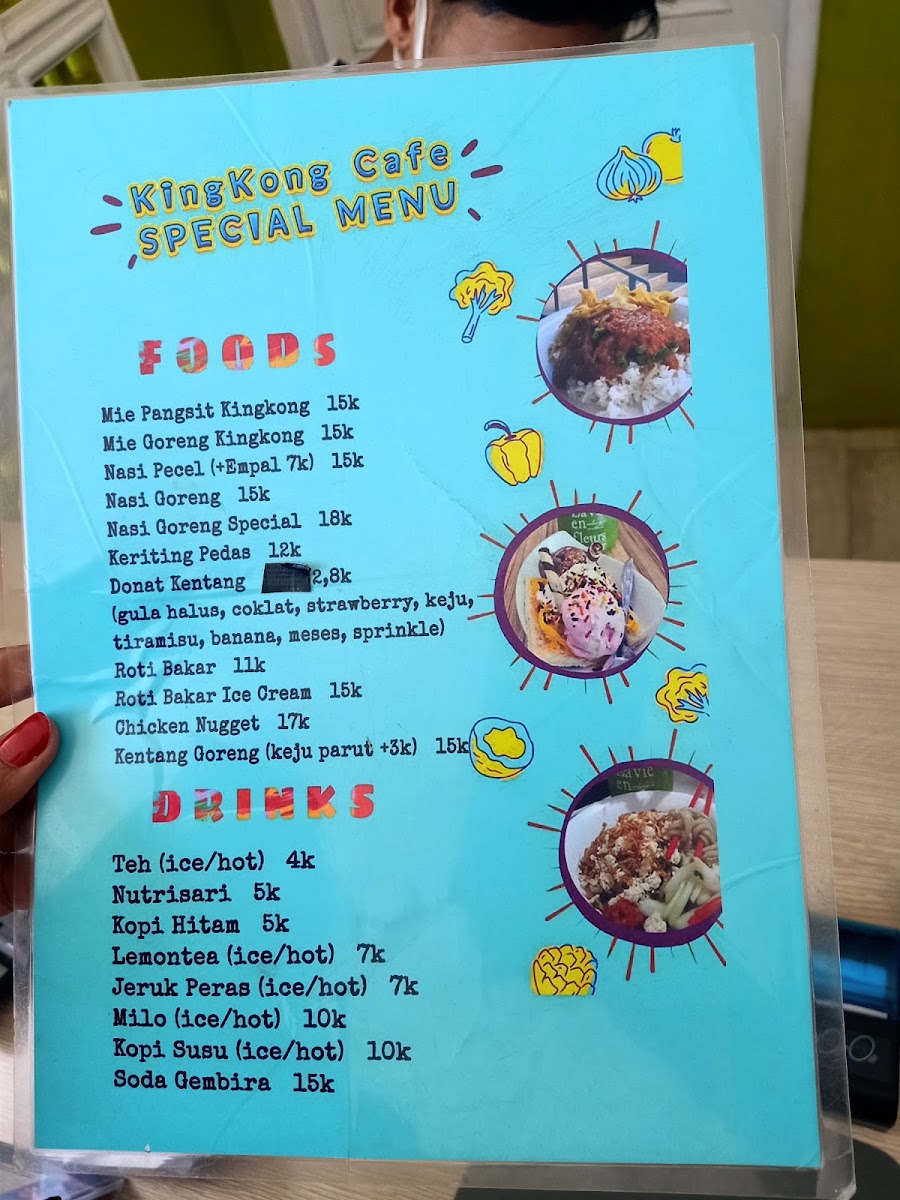 KingKong Cafe
SPECIAL MENU
FOODS
Mie Pangsit Kingkong 15k
Mie Goreng Kingkong 15k
Nasi Pecel (+Empal 7k) 15k
Nasi Goreng 15k
Nasi Goreng Special 18k
Keriting Pedas 12k
Donat Kentang 2,8k
(gula halus, coklat, strawberry, keju,
tiramisu, banana, meses, sprinkle)
Roti Bakar 11k
Roti Bakar Ice Cream 15k
Chicken Nugget 17k
Kentang Goreng (keju parut +3k) 15k
DRINKS
Teh (ice/hot) 4k
Nutrisari 5k
Kopi Hitam 5k
Lemontea (ice/hot) 7k
Jeruk Peras (ice/hot) 7k
Milo (ice/hot) 10k
Kopi Susu (ice/hot) 10k
Soda Gembira 15k
en
fleurs
en